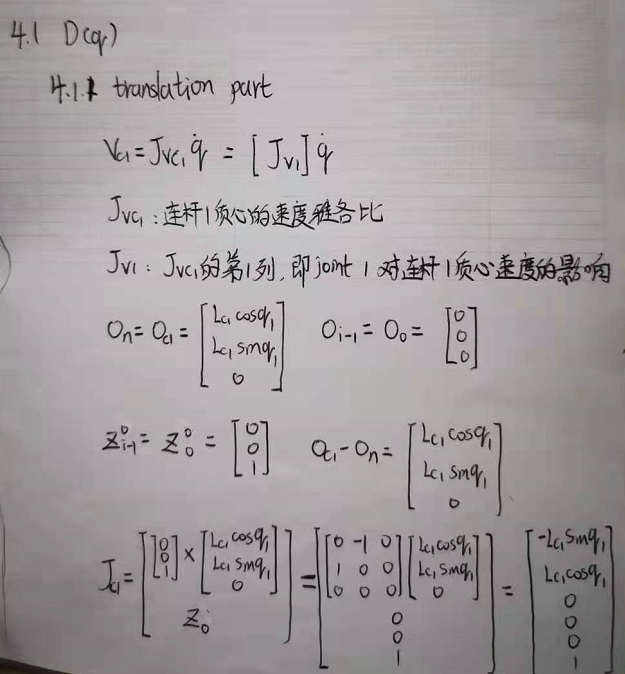 4.1 D(q)
4.1.1 translation part
V_{c1} = J_{vc_1} \dot{q} = [J_{v1}] \dot{q}
J_{vc_1} : 连杆1质心的速度雅各比
J_{v1} : J_{vc_1}的第1列, 即joint 1 对连杆1质心速度的影响
O_n = O_{c1} = \begin{bmatrix} L_{c1} cosq_1 \\ L_{c1} sinq_1 \\ 0 \end{bmatrix} O_{i-1} = O_0 = \begin{bmatrix} 0 \\ 0 \\ 0 \end{bmatrix}
z^0_{i-1} = z^0_0 = \begin{bmatrix} 0 \\ 0 \\ 1 \end{bmatrix} O_{c1} - O_n = \begin{bmatrix} L_{c1} cosq_1 \\ L_{c1} sinq_1 \\ 0 \end{bmatrix}
J_{c1} = \begin{bmatrix} \begin{bmatrix} 0 \\ 0 \\ 1 \end{bmatrix} × \begin{bmatrix} L_{c1} cosq_1 \\ L_{c1} sinq_1 \\ 0 \end{bmatrix} \\ z_0 \end{bmatrix} = \begin{bmatrix} \begin{bmatrix} 0 & -1 & 0 \\ 1 & 0 & 0 \\ 0 & 0 & 0 \end{bmatrix} \begin{bmatrix} L_{c1} cosq_1 \\ L_{c1} sinq_1 \\ 0 \end{bmatrix} \\ 0 \\ 0 \\ 1 \end{bmatrix} = \begin{bmatrix} -L_{c1} sinq_1 \\ L_{c1} cosq_1 \\ 0 \\ 0 \\ 0 \\ 1 \end{bmatrix}